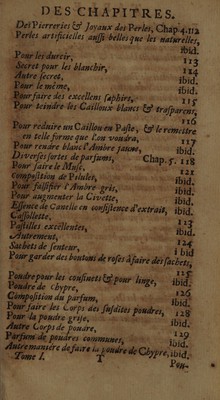 DES CHAPITRES.
Des Pierreries & Joyaux des Perles, Chap 4.112
Perles artificielles aussi belles que les naturelles,
ibid.
Pour les durcir,
113
Secret pour les blanchir,
114
Autre secret,
ibid.
Pour le même,
ibid.
Pour faire des excellens saphirs,
115
Pour teindre les Cailloux blancs & trasparens,
116
Pour reduire un Caillou en Paste, & le remettre
en telle forme que l'on voudra,
117
Pour rendre blanc l'Ambre jaune,
ibid.
Diverses sortes de parfums, Chap. 5. 118
Pour faire le Musc,
121
Composition de Pelulet,
ibid.
Pour falsifier l'Ambre gris,
ibid.
Pour augmenter la Civette,
ibid.
Essence de Canelle en consistence d'extrait, ibid.
Cassollette,
123
Pastilles excellentes,
ibid.
Autrement,
124
Sachets de senteur,
ibid
Pour garder des boutons de roses à faire des sachets,
125
Poudre pour les coussinets & pour linge, ibid.
Poudre de Chypre,
126
Composition du parfum,
ibid.
Pour faire les Corps des susdites poudres, 128
Pour la poudre grise,
ibid.
Autre Corps de poudre,
129
Parfum de poudres communes,
ibid.
Autre maniere de faire la poudre de Chypre, ibid.
Tome I. T Pou-